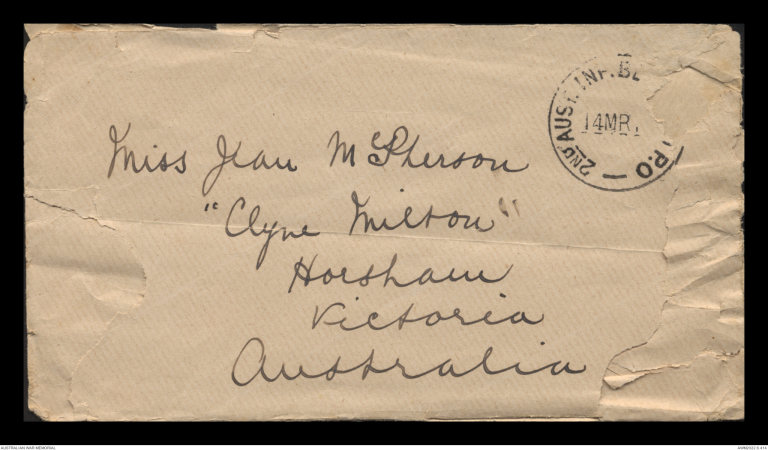 2ND AUST. INF. B P.O
14MR
Miss Jean McPherson
"Clyne Milton"
Horsham
Victoria
Australia
AUSTRALIAN WAR MEMORIAL